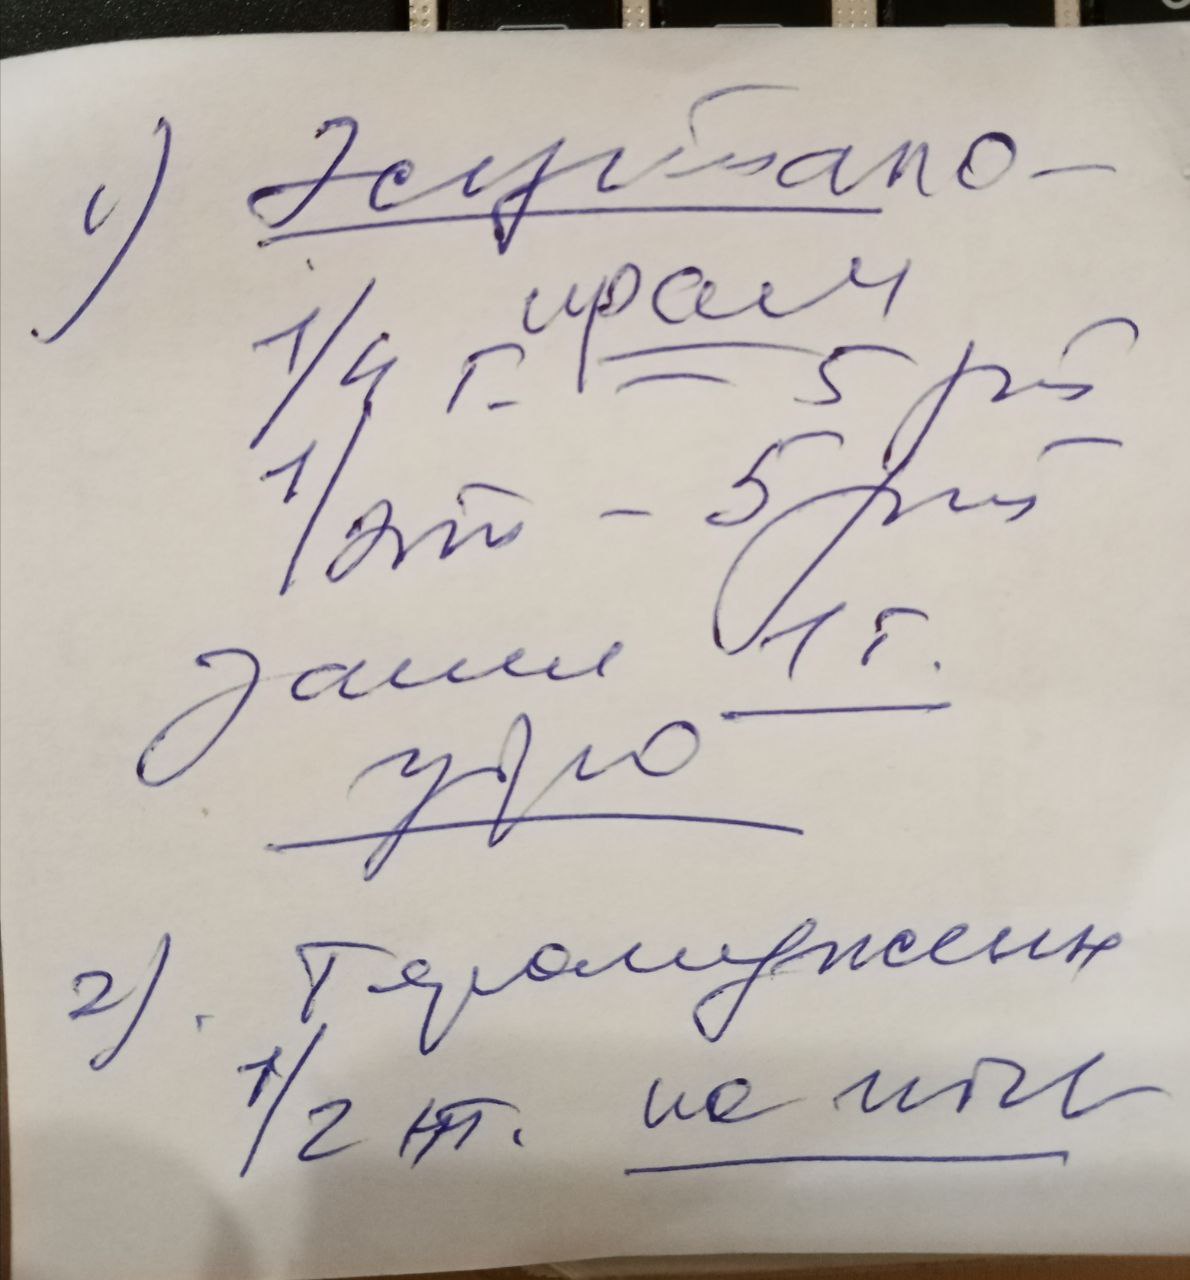 1) Эсцитапо-
прам
1/4 т. – 5 дней
1/2 т – 5 дней
Далее 1 т.
утро
2). Тералиджен
1/2 т. на ночь